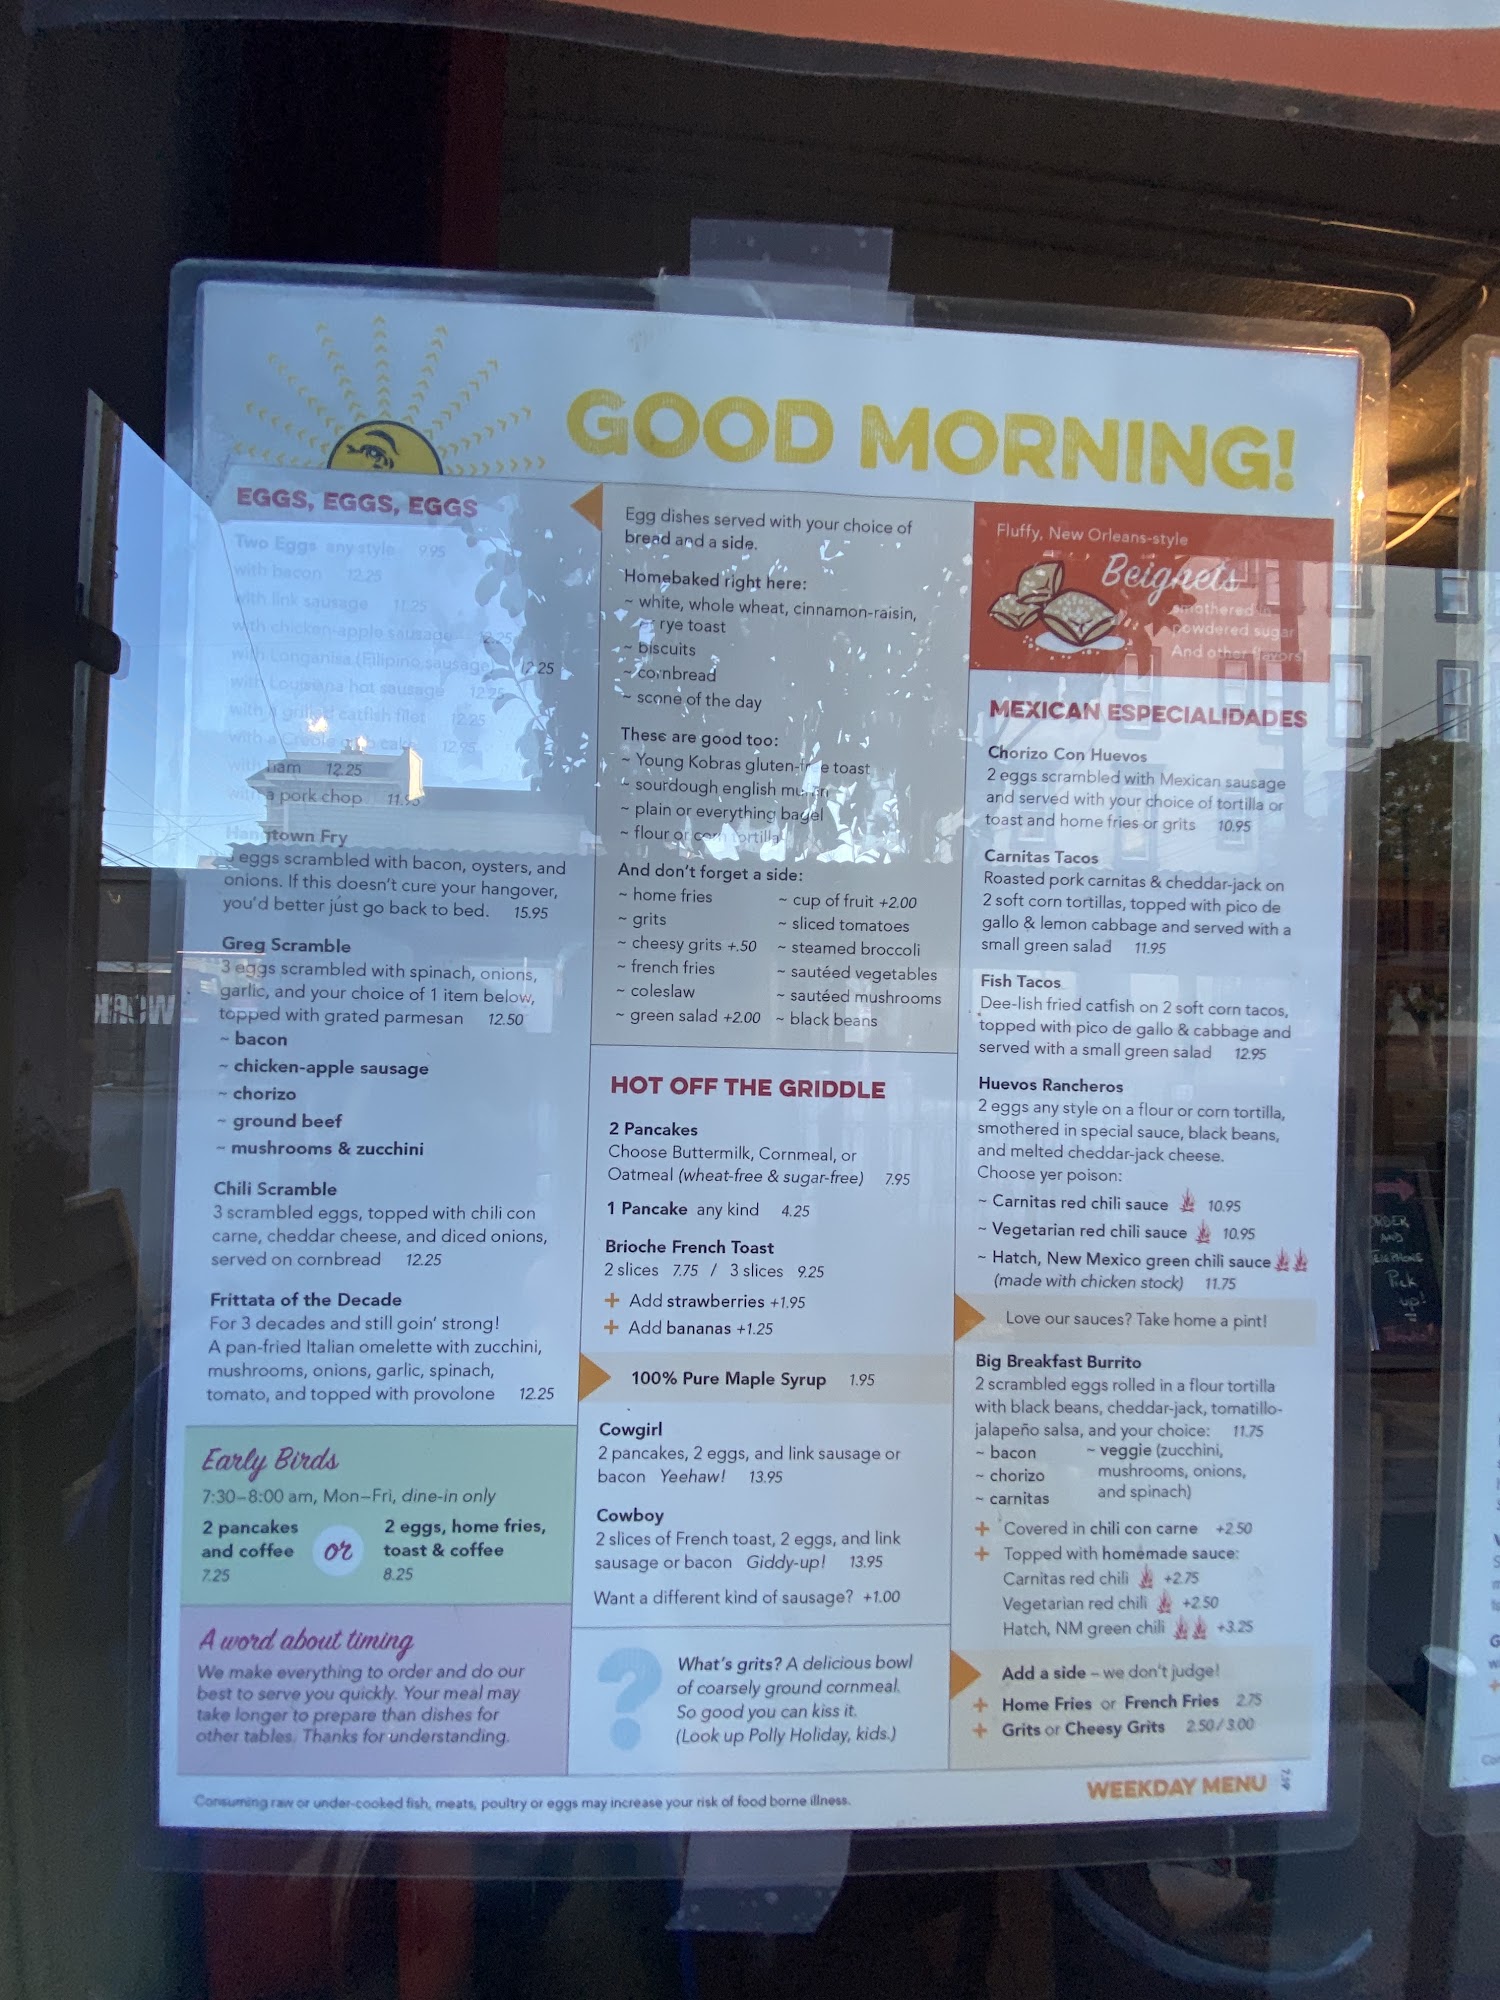 GOOD MORNING!
EGGS, EGGS, EGGS
Two Eggs any style 9.95
with bacon 12.25
with link sausage 11.25
with chicken-apple sausage 12.25
with Longanisa (Filipino sausage) 12.25
with Louisiana hot sausage 12.25
with a grilled catfish filet 12.25
with a Creole crab cake 12.95
with ham 12.25
with a pork chop 11.95
Hangtown Fry
3 eggs scrambled with bacon, oysters, and
onions. If this doesn't cure your hangover,
you'd better just go back to bed. 15.95
Greg Scramble
3 eggs scrambled with spinach, onions,
garlic, and your choice of 1 item below,
topped with grated parmesan 12.50
~ bacon
~ chicken-apple sausage
~ chorizo
~ ground beef
~ mushrooms & zucchini
Chili Scramble
3 scrambled eggs, topped with chili con
carne, cheddar cheese, and diced onions,
served on cornbread 12.25
Frittata of the Decade
For 3 decades and still goin' strong!
A pan-fried Italian omelette with zucchini,
mushrooms, onions, garlic, spinach,
tomato, and topped with provolone 12.25
Early Birds
7:30–8:00 am, Mon–Fri, dine-in only
2 pancakes
and coffee
7.25
or
2 eggs, home fries,
toast & coffee
8.25
A word about timing
We make everything to order and do our
best to serve you quickly. Your meal may
take longer to prepare than dishes for
other tables. Thanks for understanding.
Egg dishes served with your choice of
bread and a side.
Homebaked right here:
~ white, whole wheat, cinnamon-raisin,
or rye toast
~ biscuits
~ cornbread
~ scone of the day
These are good too:
~ Young Kobras gluten-free toast
~ sourdough english muffin
~ plain or everything bagel
~ flour or corn tortilla
And don't forget a side:
~ home fries
~ grits
~ cheesy grits +.50
~ french fries
~ coleslaw
~ green salad +2.00
~ cup of fruit +2.00
~ sliced tomatoes
~ steamed broccoli
~ sautéed vegetables
~ sautéed mushrooms
~ black beans
HOT OFF THE GRIDDLE
2 Pancakes
Choose Buttermilk, Cornmeal, or
Oatmeal (wheat-free & sugar-free) 7.95
1 Pancake any kind 4.25
Brioche French Toast
2 slices 7.75 / 3 slices 9.25
+ Add strawberries +1.95
+ Add bananas +1.25
100% Pure Maple Syrup 1.95
Cowgirl
2 pancakes, 2 eggs, and link sausage or
bacon Yeehaw! 13.95
Cowboy
2 slices of French toast, 2 eggs, and link
sausage or bacon Giddy-up! 13.95
Want a different kind of sausage? +1.00
?
What's grits? A delicious bowl
of coarsely ground cornmeal.
So good you can kiss it.
(Look up Polly Holiday, kids.)
Fluffy, New Orleans-style
Beignets
smothered in
powdered sugar
And other flavors!
MEXICAN ESPECIALIDADES
Chorizo Con Huevos
2 eggs scrambled with Mexican sausage
and served with your choice of tortilla or
toast and home fries or grits 10.95
Carnitas Tacos
Roasted pork carnitas & cheddar-jack on
2 soft corn tortillas, topped with pico de
gallo & lemon cabbage and served with a
small green salad 11.95
Fish Tacos
Dee-lish fried catfish on 2 soft corn tacos,
topped with pico de gallo & cabbage and
served with a small green salad 12.95
Huevos Rancheros
2 eggs any style on a flour or corn tortilla,
smothered in special sauce, black beans,
and melted cheddar-jack cheese.
Choose yer poison:
~ Carnitas red chili sauce 10.95
~ Vegetarian red chili sauce 10.95
~ Hatch, New Mexico green chili sauce
(made with chicken stock) 11.75
Love our sauces? Take home a pint!
Big Breakfast Burrito
2 scrambled eggs rolled in a flour tortilla
with black beans, cheddar-jack, tomatillo-
jalapeño salsa, and your choice: 11.75
~ bacon
~ chorizo
~ carnitas
~ veggie (zucchini,
mushrooms, onions,
and spinach)
+ Covered in chili con carne +2.50
+ Topped with homemade sauce:
Carnitas red chili +2.75
Vegetarian red chili +2.50
Hatch, NM green chili +3.25
Add a side – we don't judge!
+ Home Fries or French Fries 2.75
+ Grits or Cheesy Grits 2.50/3.00
WEEKDAY MENU
Consuming raw or under-cooked fish, meats, poultry or eggs may increase your risk of food borne illness.
ORDER
AND
TELEPHONE
Pick
up!